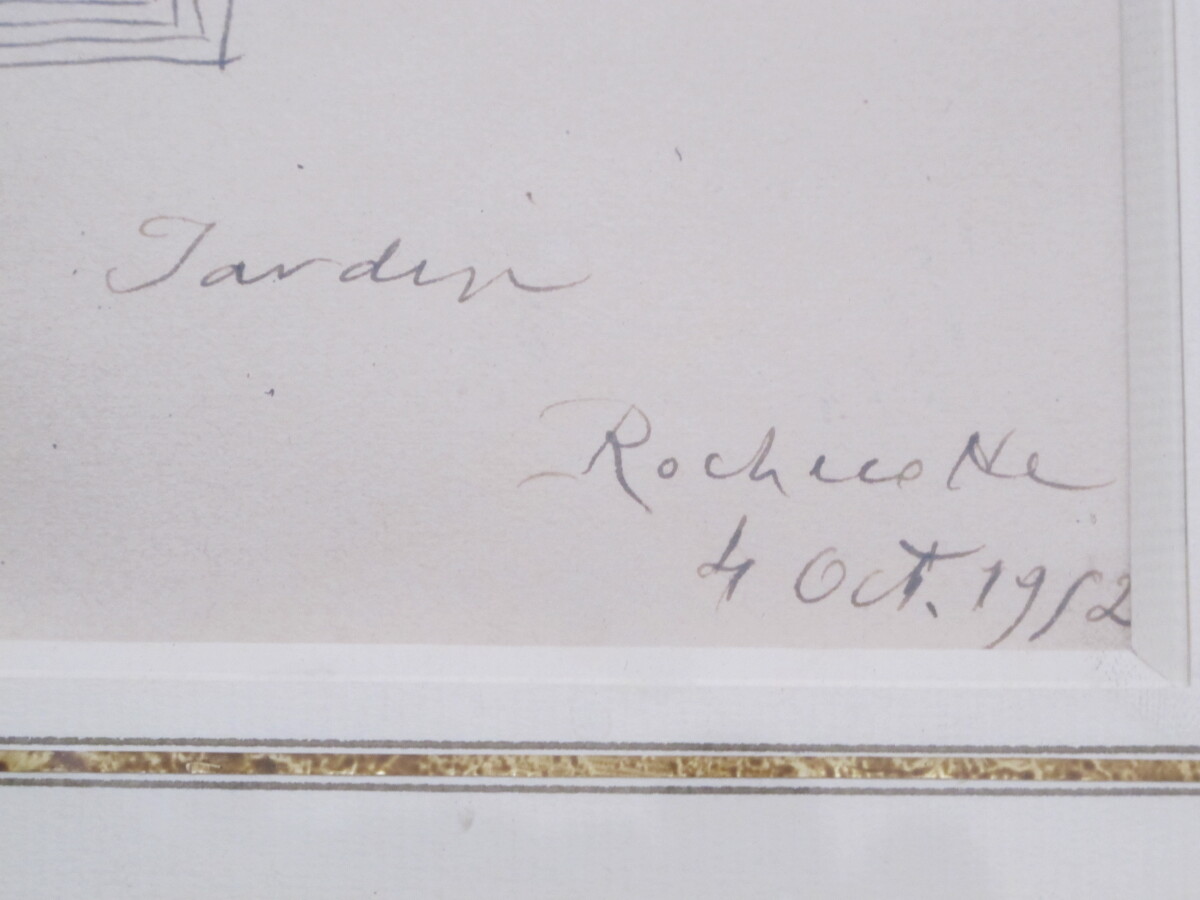 Jardin
Rochecotte
4 Oct. 1952